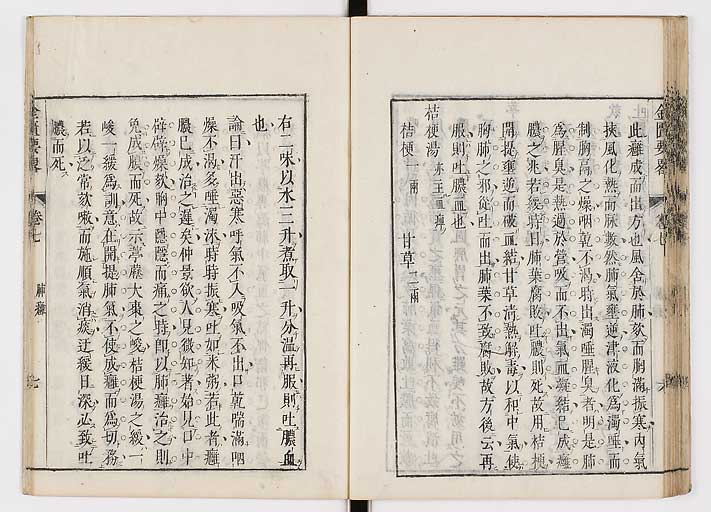 金匱要畧
卷七
此癰成而出方也風舍於肺欬而胸滿振寒内氣
挾風化熱而脉數然肺氣壅逆津液化為濁唾而
制胸膈之燥咽乾不渴時出濁唾腥臭者明是肺
為腥臭是熱過於營吸而不出氣血凝結已成癰
膿之兆若緩時日肺葉腐敗吐膿則死故用桔梗
開提壅逆而破血結甘草清熱解毒以和中氣使
胸肺之邪從吐而出肺葉不致腐敗故方後云再
服則吐膿血也
桔梗湯 亦主血痺
桔梗一兩 甘草二兩
右二味以水三升煮取一升分溫再服則吐膿血
也
論曰汗出惡寒呼氣不入吸氣不出口乾喘滿咽
燥不渴多唾濁沫時時振寒吐如米粥若此者癰
膿已成治之遲矣仲景欲人見微知著始見口中
辟辟燥欬胸中隱隱而痛之時即以肺癰治之則
免成膿而死故示葶藶大棗之峻桔梗湯之緩一
峻一緩為訓意在開提肺氣不使成癰而為切務
若以之常欬嗽而施順氣消痰迂緩日深必致吐
膿而死
金匱要畧
卷七
肺癰